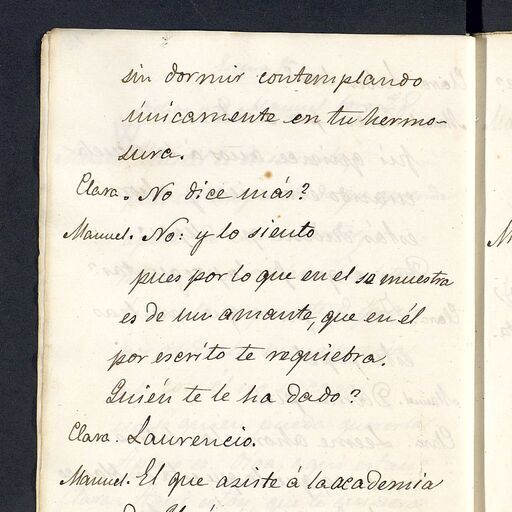 sin dormir contemplando
únicamente en tu hermo-
sura.
Clara. No dice más?
Manuel. No: y lo siento
pues por lo que en el se muestra
es de un amante, que en él
por escrito te requiebra.
Quién te le ha dado?
Clara. Laurencio.
Manuel. El que asiste á la academia